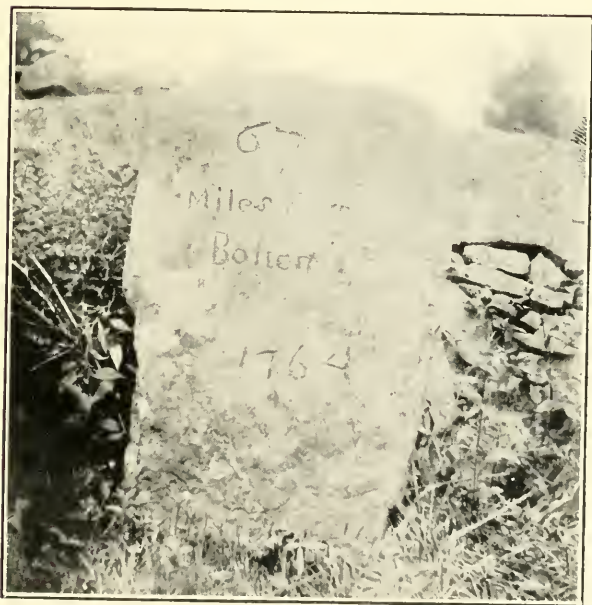 67
Miles
Boſton
1764